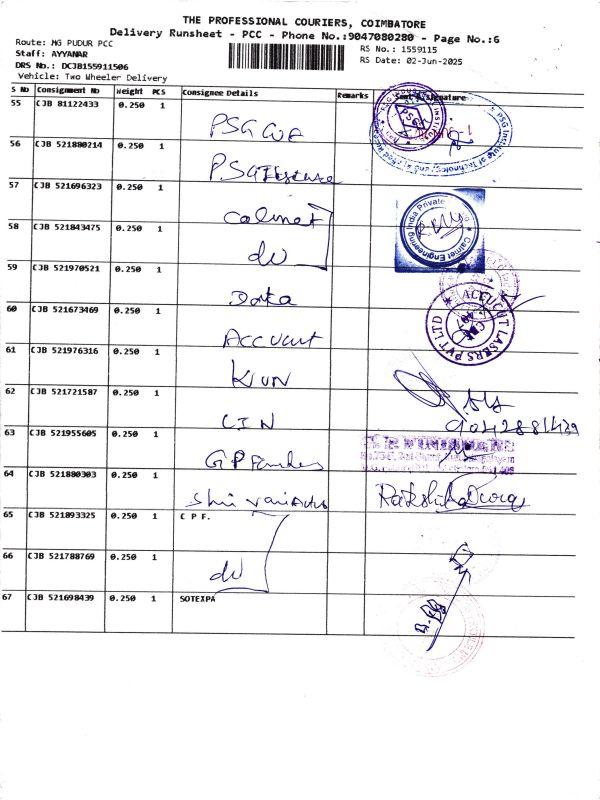 THE PROFESSIONAL COURIERS, COIMBATORE
Delivery Runsheet - PCC - Phone No.:9047080280 - Page No.:6
Route: MG PUDUR PCC
Staff: AYYANAR
DRS No.: DCJB155911506
Vehicle: Two Wheeler Delivery
RS No.: 1559115
RS Date: 02-Jun-2025
S No Consignment No Weight PCS Consignee Details Remarks Signature
55 CJB 81122433 0.250 1 PSG
56 CJB 521880214 0.250 1
PSG Institute of Technology and
57 CJB 521696323 0.250 1 Calmet
Calmet Engineering India Private
58 CJB 521843475 0.250 1 do
59 CJB 521970521 0.250 1 Data
60 CJB 521673469 0.250 1 Accucut
ACCUCUT LASERS PVT LTD
61 CJB 521976316 0.250 1
62 CJB 521721587 0.250 1
63 CJB 521955605 0.250 1 GP
64 CJB 521880303 0.250 1 Shri
65 CJB 521893325 0.250 1 C P F.
66 CJB 521788769 0.250 1 do
67 CJB 521698439 0.250 1 SOTEXPA